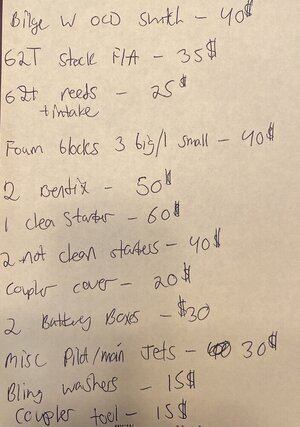 Bilge w OCD switch - 40$
62T stock F/A - 35$
62t reeds - 25$
+intake
Foam blocks 3 big/1 small - 40$
2 Bendix - 50$
1 clean Starter - 60$
2 not clean starters - 40$
Coupler cover - 20$
2 Battery Boxes - $30
Misc Pilot/main Jets - 30$
Bling washers - 15$
Coupler tool - 15$